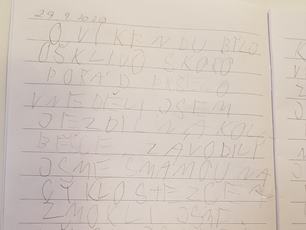 29 9 2020
O VÍKENDU BYLO
OŠKLIVO SKORO
POŘÁD
V NEDĚLI JSEM
JEZDIL NA KOLE
ZÁVODILI
JSME S MAMOU NA
CYKLOSTEZCE A
ZMOKLI JSME.